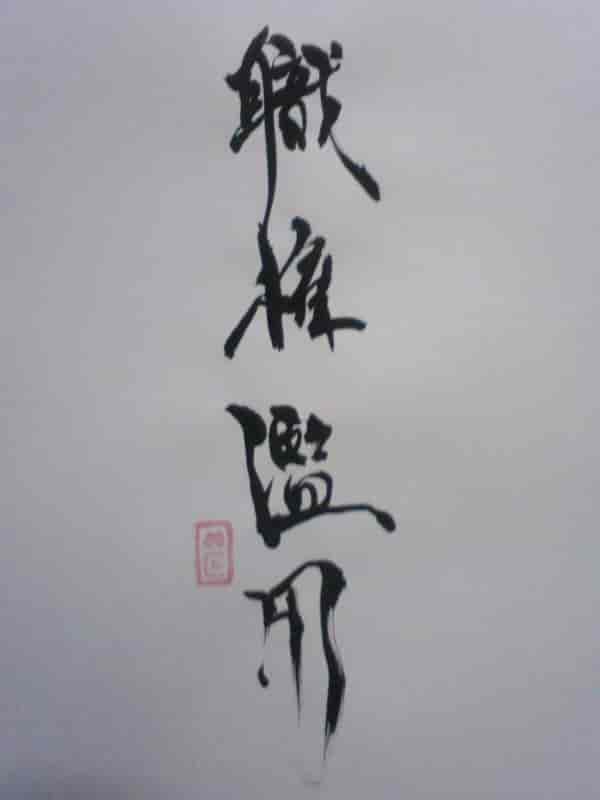 職権濫用